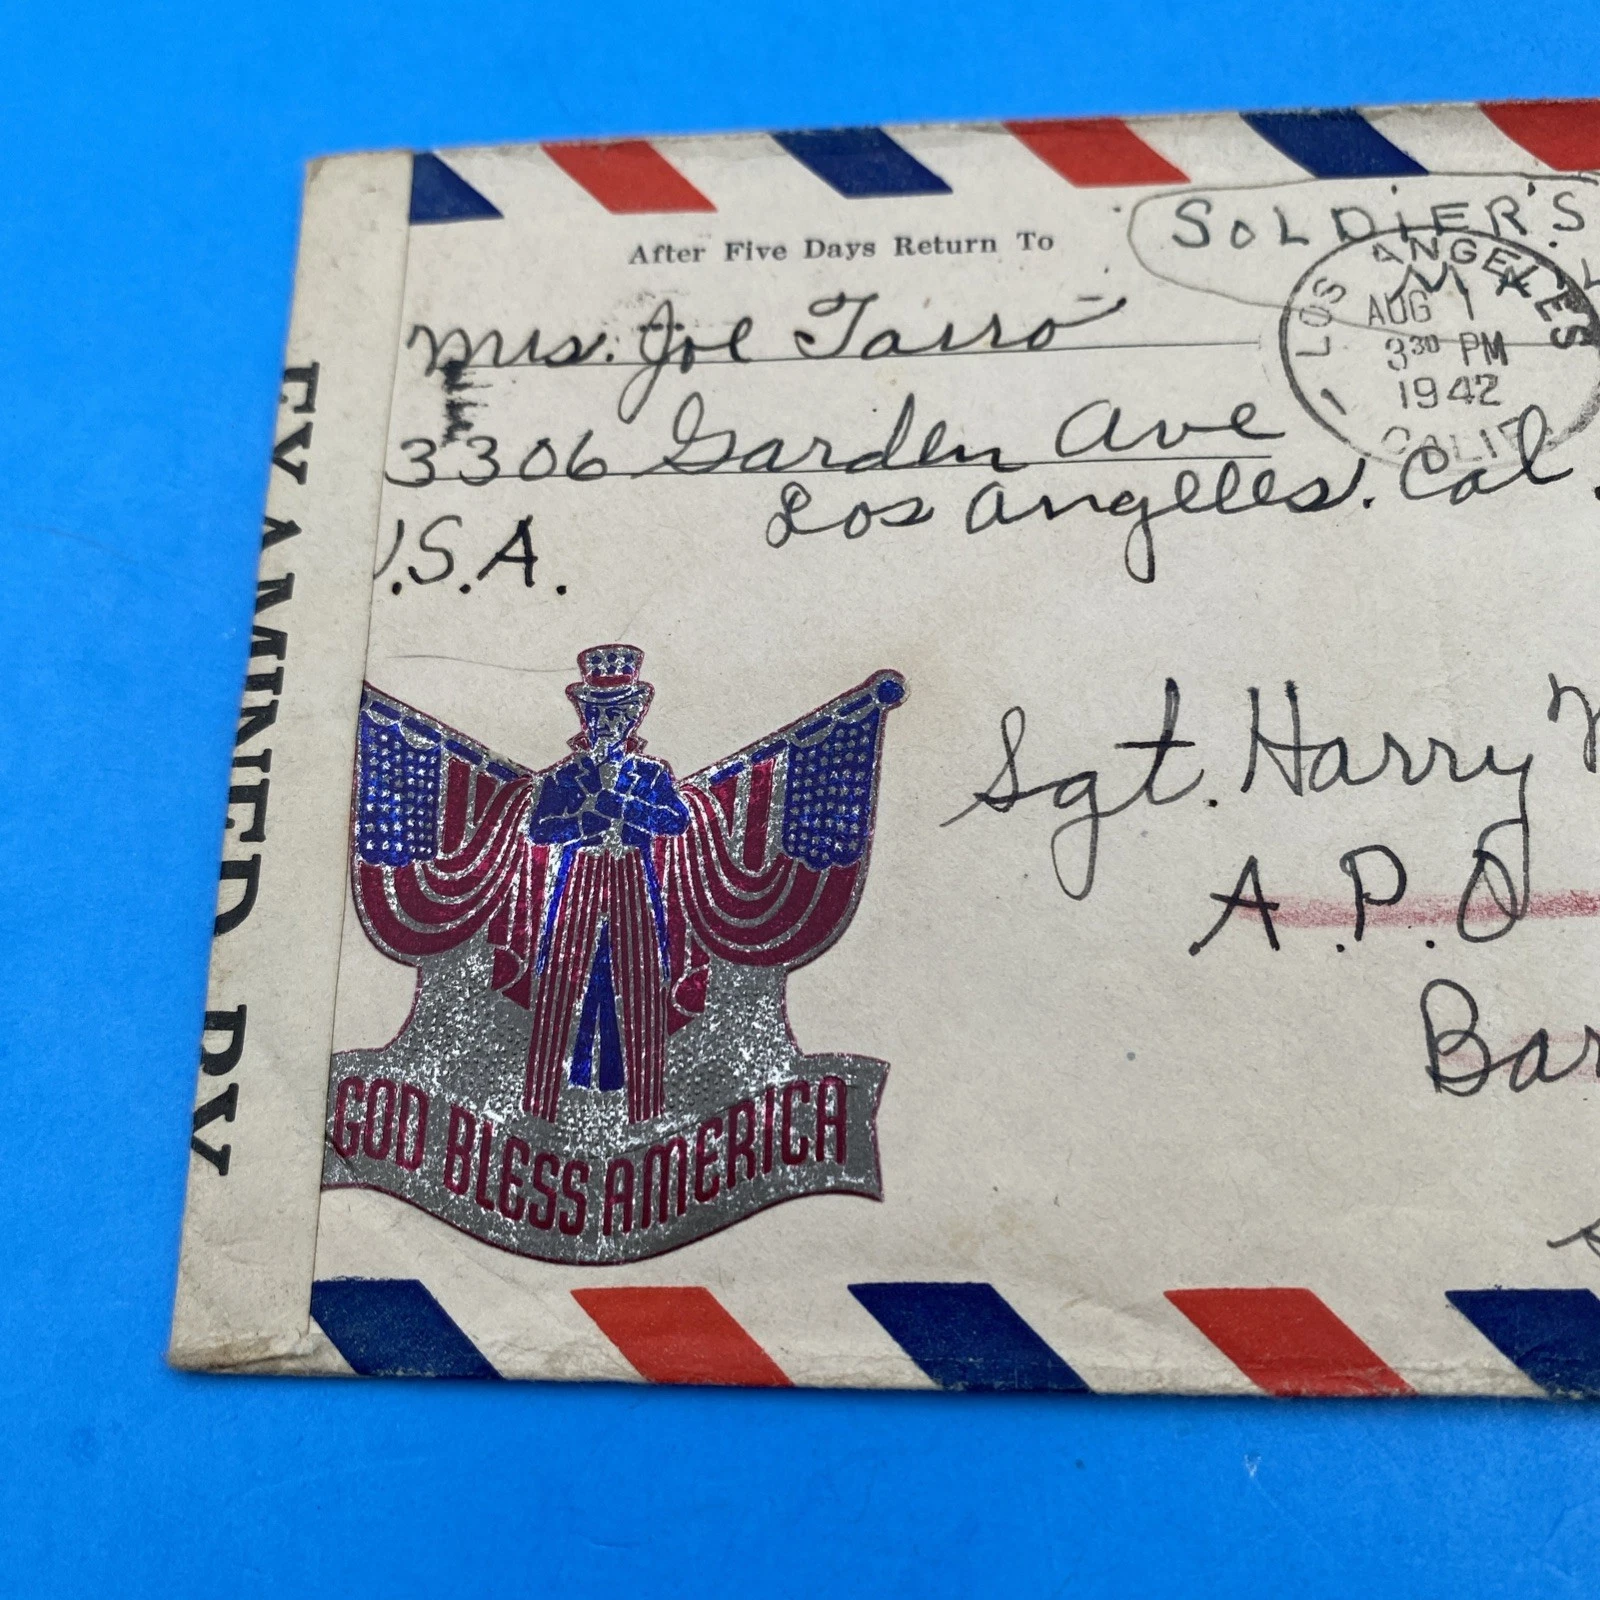 After Five Days Return To
SOLDIER'S
Mrs. Joe Tarro
LOS ANGELES
AUG 1
3 30 PM
1942
CALIF.
1
3306 Garden Ave
Los Angelles. Cal.
.S.A.
Sgt. Harry
A.P.O
Bar
EXAMINED BY
GOD BLESS AMERICA